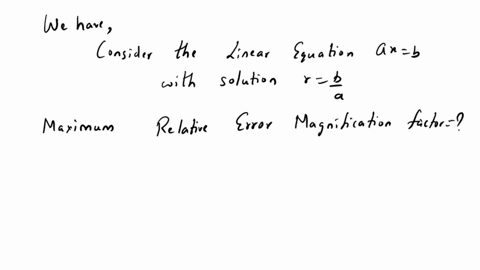 We have,
Consider the Linear Equation ax=b
with solution r=b/a
Maximum Relative Error Magnification factor=?